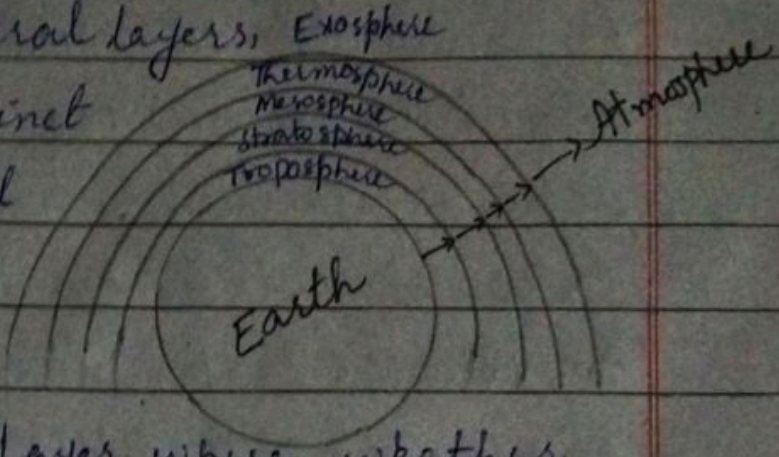 ral layers, Exosphere
Thermosphere
Mesosphere
Stratosphere
Troposphere
Atmosphere
inct
l
Earth
layer where weather